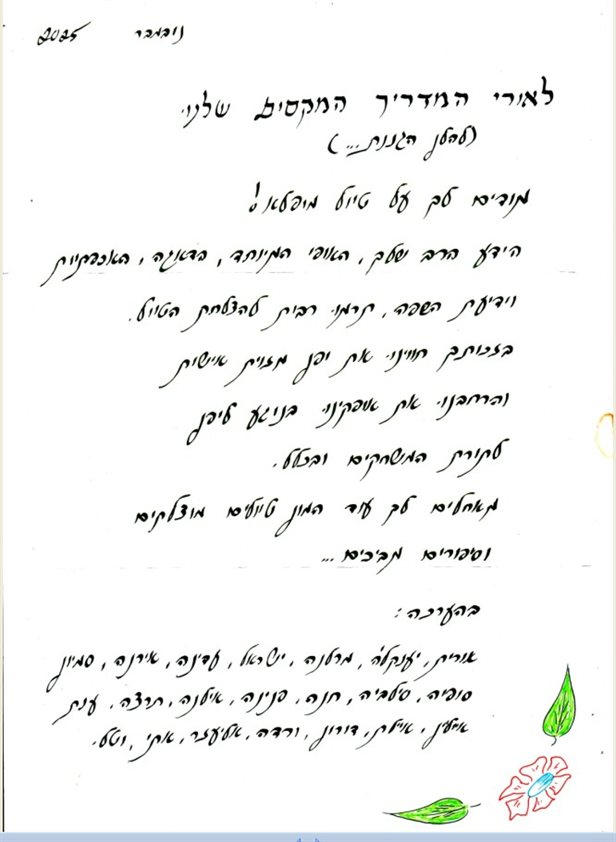 נובמבר 2025
לאורי המדריך המקסים שלנו.
(להלן הגננת...)
מודים לך על טיול מופלא!
הידע הרב שלך, האופי המיוחד, הדאגה, האכפתיות
וידיעת השפה, תרמו רבות להצלחת הטיול.
בזכותך חווינו את יפן מזוית אישית
והרחבנו את אופקינו בנוגע ליפן
לתורת המשחקים ובכלל.
מאחלים לך עוד המון טיולים מוצלחים
וסיפורים מביכים...
בהערכה:
אורית, יענקל'ה, מרלנה, ישראל, עדינה, אירנה, סמיון
סופיה, סילביה, חנה, פנינה, אילנה, תרצה, ענת
איילת, דורון, ורדה, אליעזר, אתי, וטל.